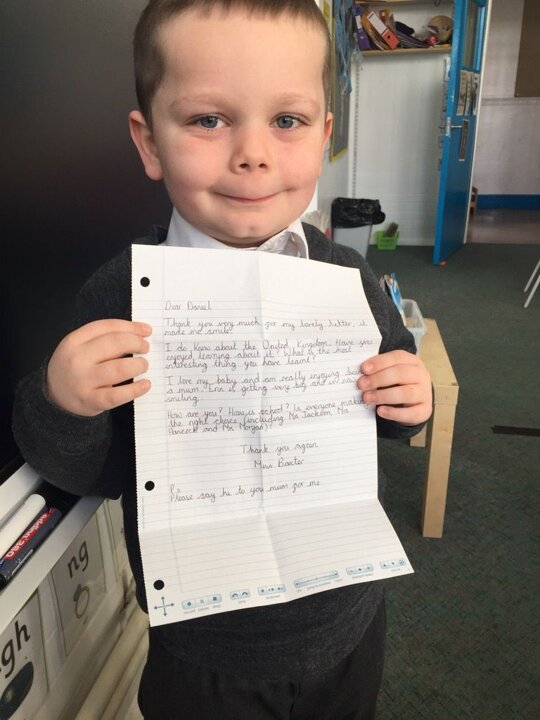 Dear Daniel
Thank you very much for my lovely letter, it
made me smile.
I do know about the United Kingdom. Have you
enjoyed learning about it? What is the most
interesting thing you have learnt?
I love my baby and am really enjoying
a mum. Erin is getting very big and is now
smiling.
How are you? How is school? Is everyone making
the right choice (including Ms Jackson, Mrs
Hancock and Ms Morgan)?
Thank you again
Miss Baxter
P.s
Please say hi to you mum for me.
edding 360
ng
igh